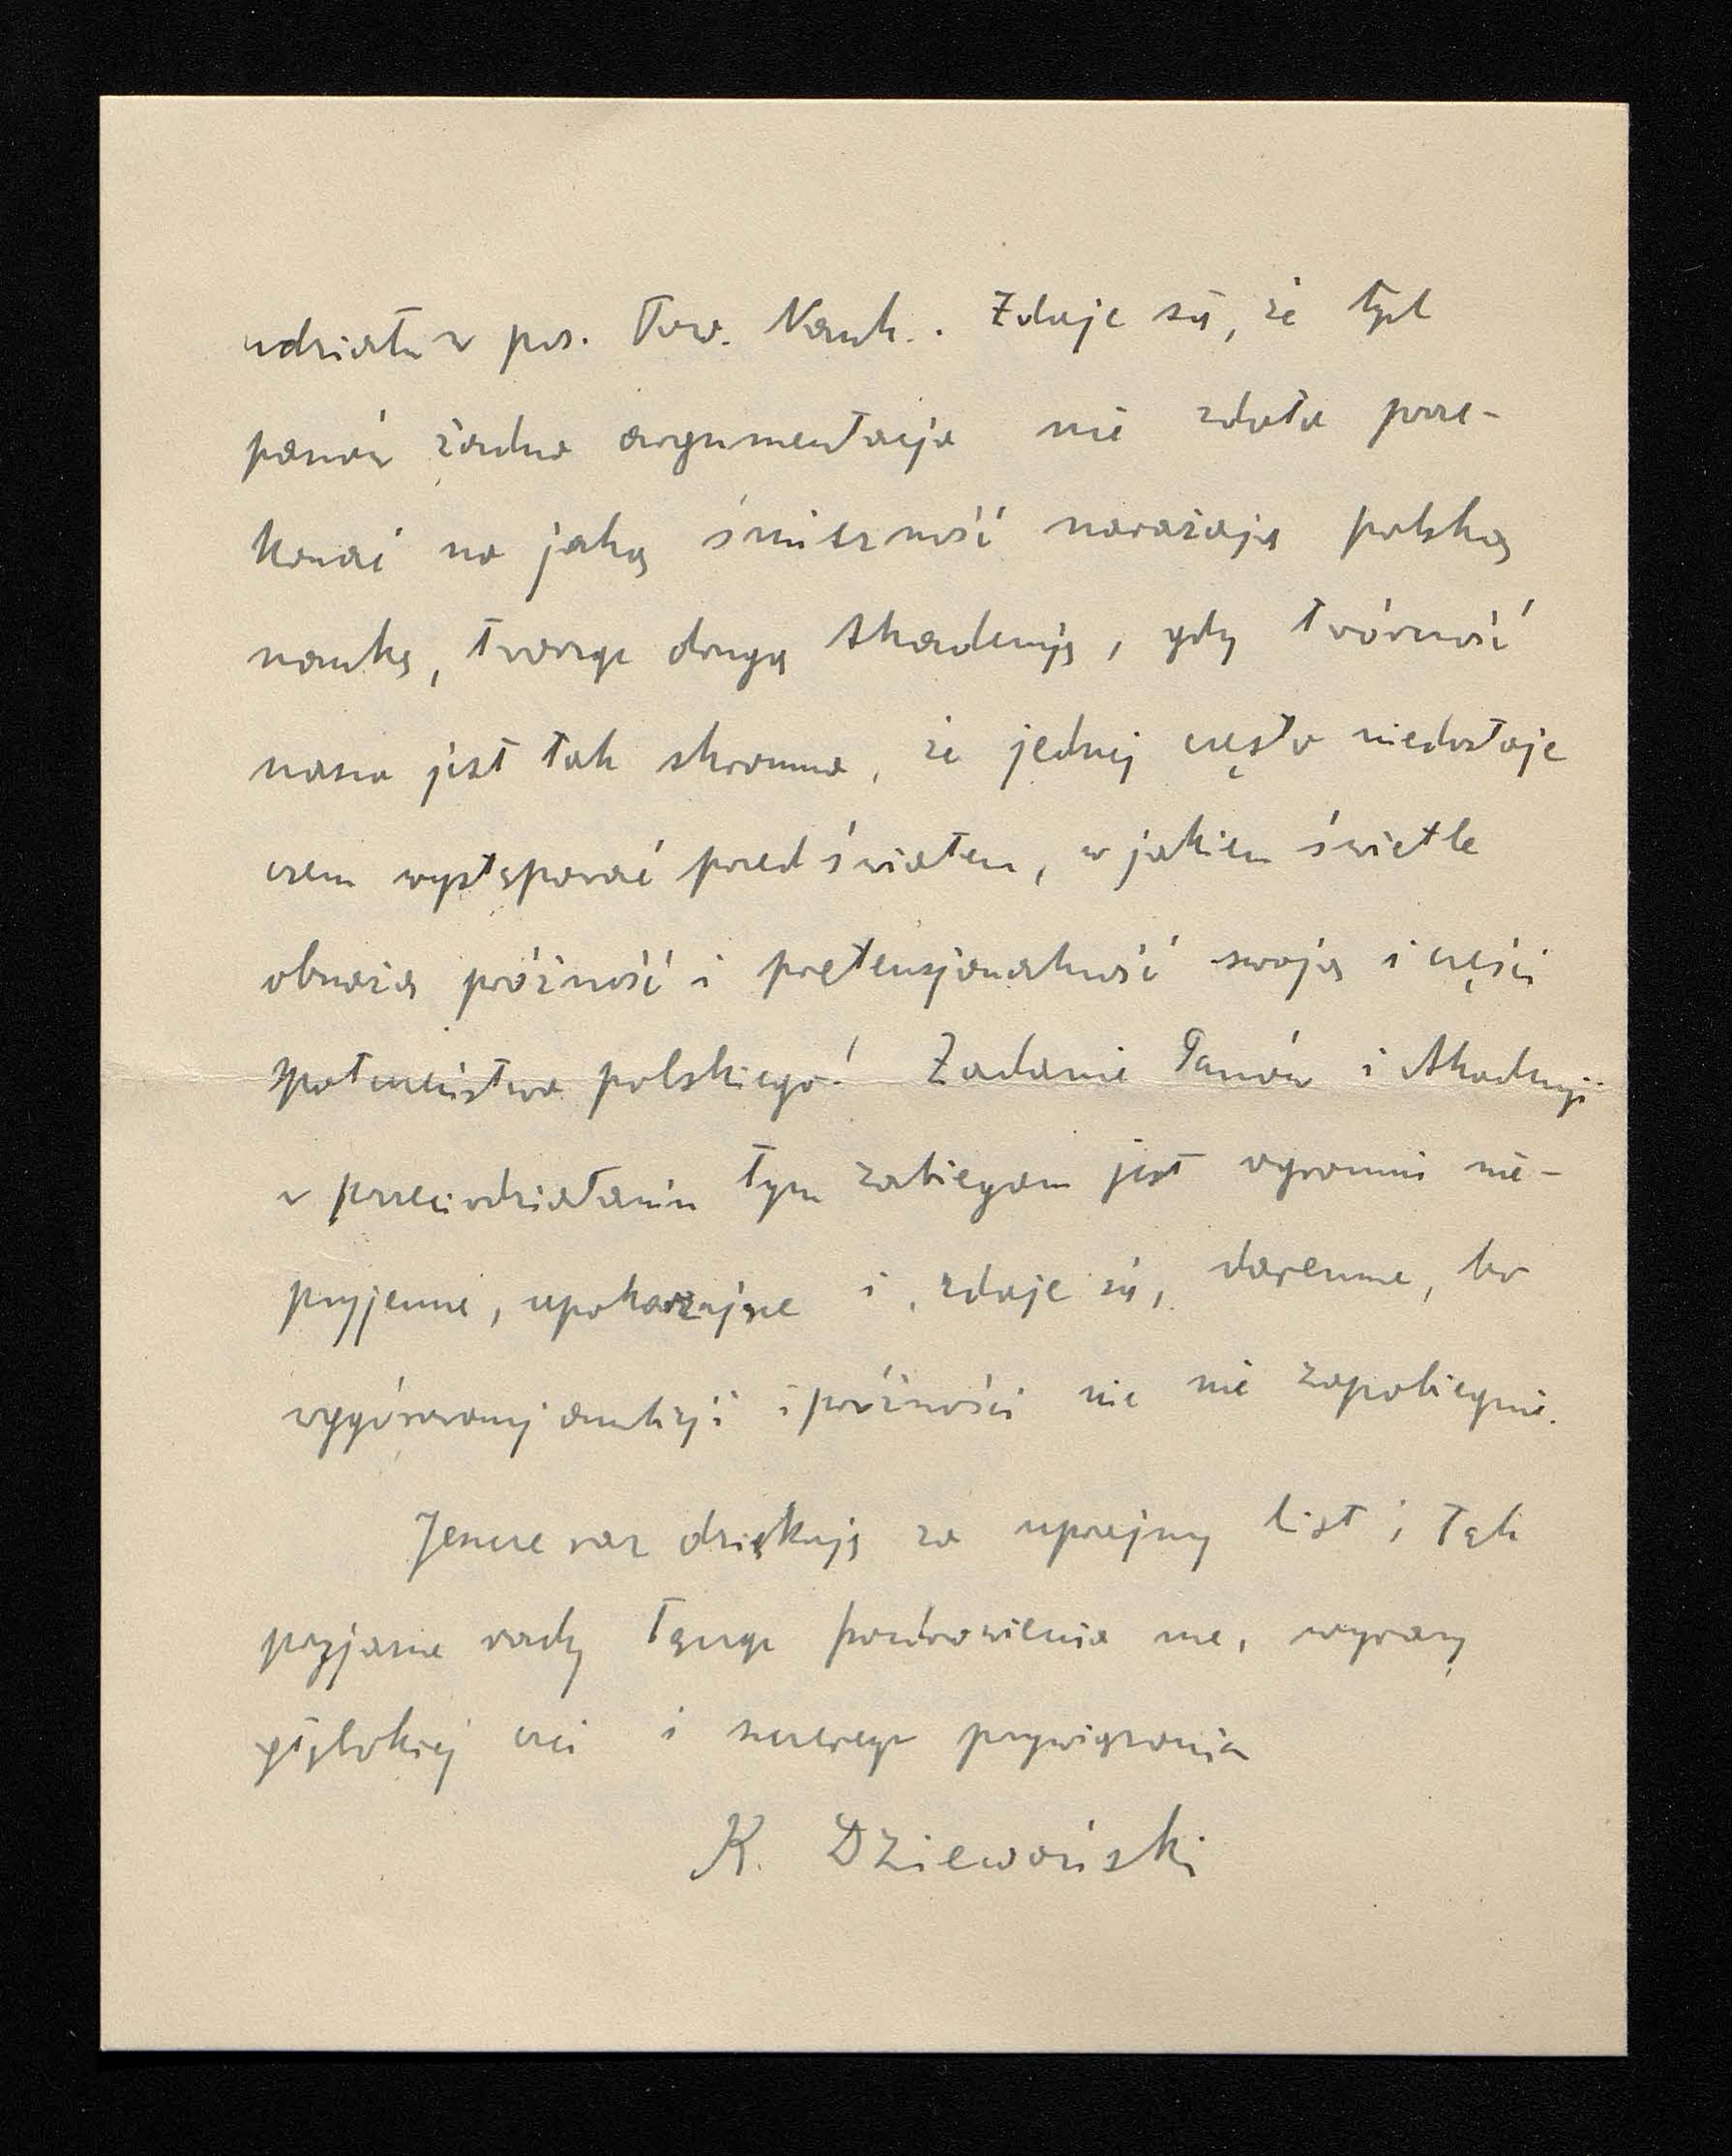 udziału w pos. Tow. Nauk.. Zdaje się, że tych
panów żadna argumentacja nie zdoła prze-
konać na jaką śmieszność narażają polską
naukę, tworząc drugą Akademję, gdy twórczość
nasza jest tak skromna, że jednej często niedostaje
czem występować przed światem, w jakiem świetle
obnażą próżność i pretensjonalność swoją i części
społeczeństwa polskiego! Zadanie Panów i Akademji
w przeciwdziałaniu tym zabiegom jest ogromnie nie-
przyjemne, upokarzające i, zdaje się, daremne, bo
wygórowanej ambicji i próżności nic nie zapobiegnie.
Jeszcze raz dziękuję za uprzejmy list i tak
przyjazne rady łącząc pozdrowienia me, wyrazy
głębokiej czci i szczerego przywiązania
K. Dziewoński